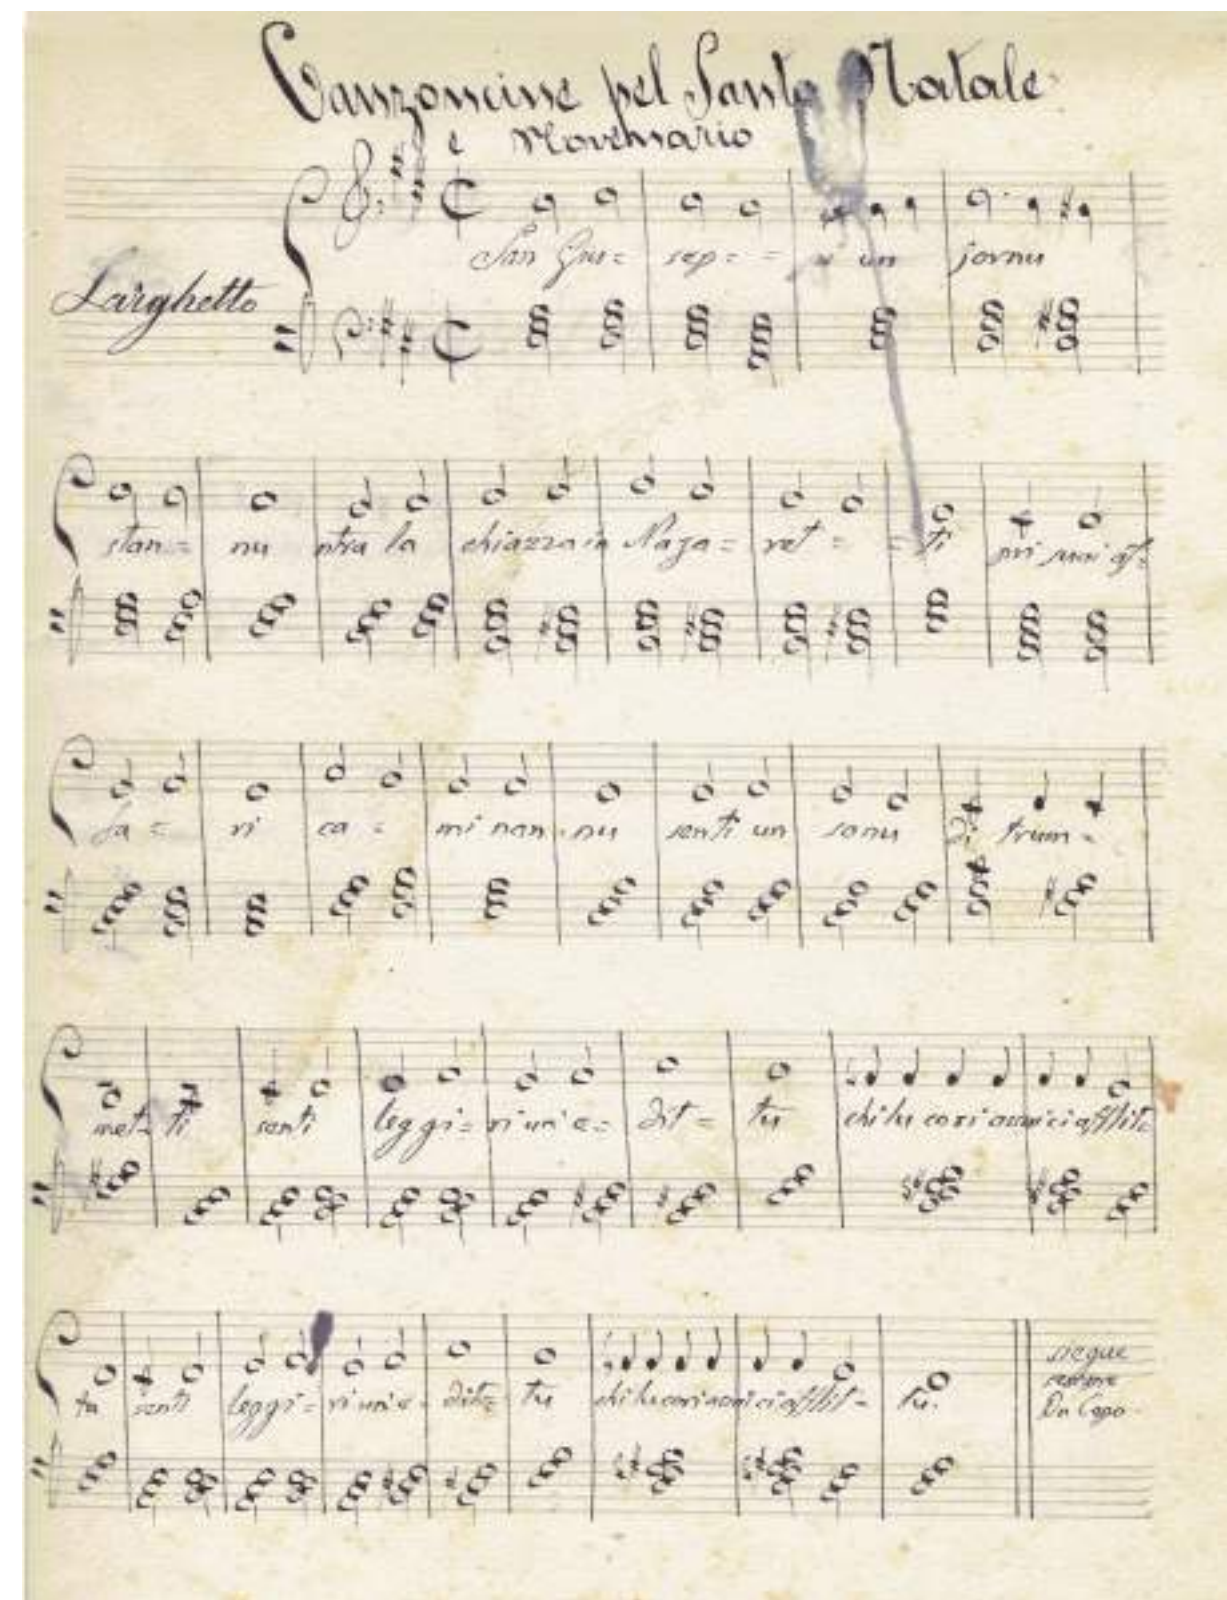 Canzoncine pel Santo Natale
e Novenario
Larghetto
San Giu= sep= = un jornu
stan= nu ntra la chiazza in Naza= ret= = ti pri
fa= ri ca= mi nan nu senti un sonu di trum=
met= ti senti leggi= ri un e= dit= tu chi lu cori
tu senti leggi= ri un e= dit= tu chi lu cori afflit= tu.
siegue
Da Capo